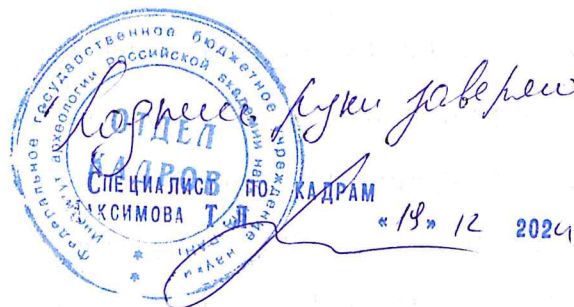 Федеральное государственное бюджетное учреждение науки
Институт археологии Российской академии наук
ОТДЕЛ
КАДРОВ
Подпись руки заверяю
СПЕЦИАЛИСТ ПО КАДРАМ
МАКСИМОВА Т.Л.
«19» 12 2024